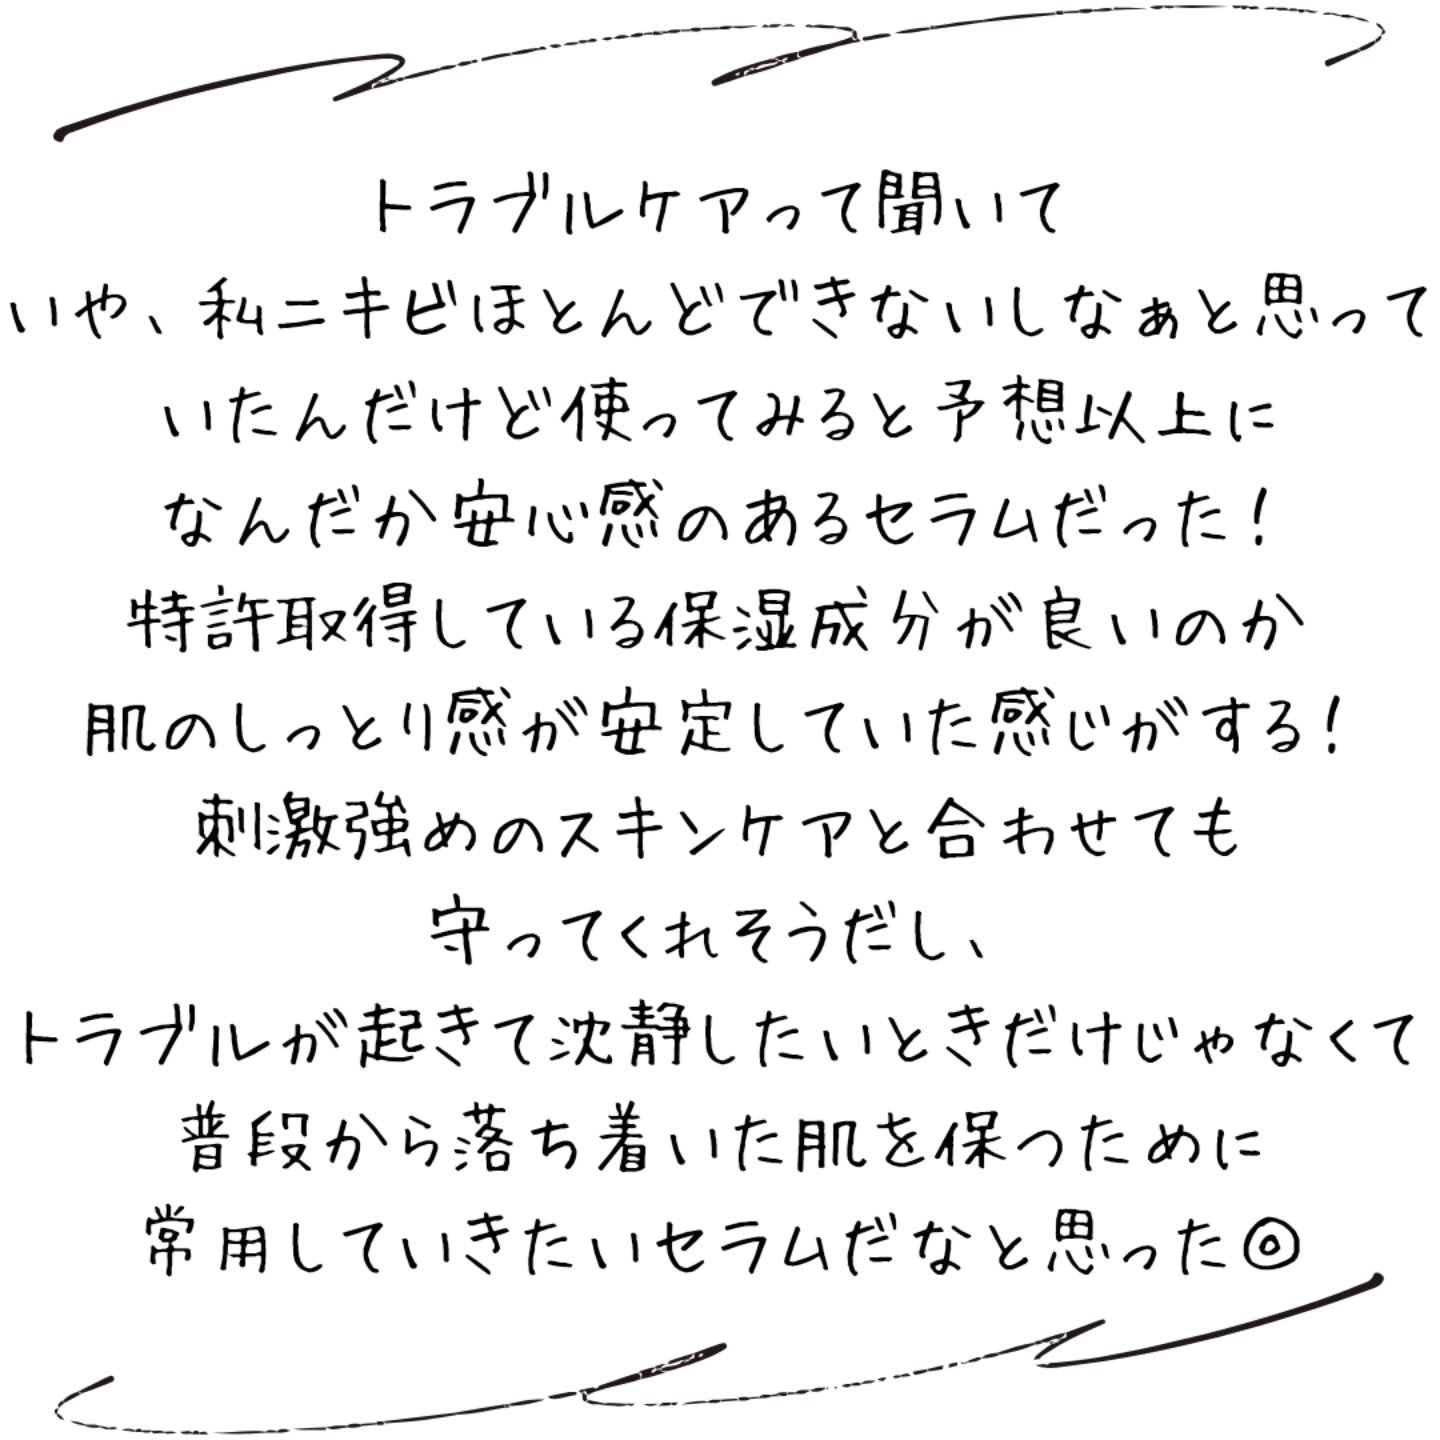 トラブルケアって聞いて
いや、私ニキビほとんどできないしなぁと思って
いたんだけど使ってみると予想以上に
なんだか安心感のあるセラムだった!
特許取得している保湿成分が良いのか
肌のしっとり感が安定していた感じがする!
刺激強めのスキンケアと合わせても
守ってくれそうだし、
トラブルが起きて沈静したいときだけじゃなくて
普段から落ち着いた肌を保つために
常用していきたいセラムだなと思った◎